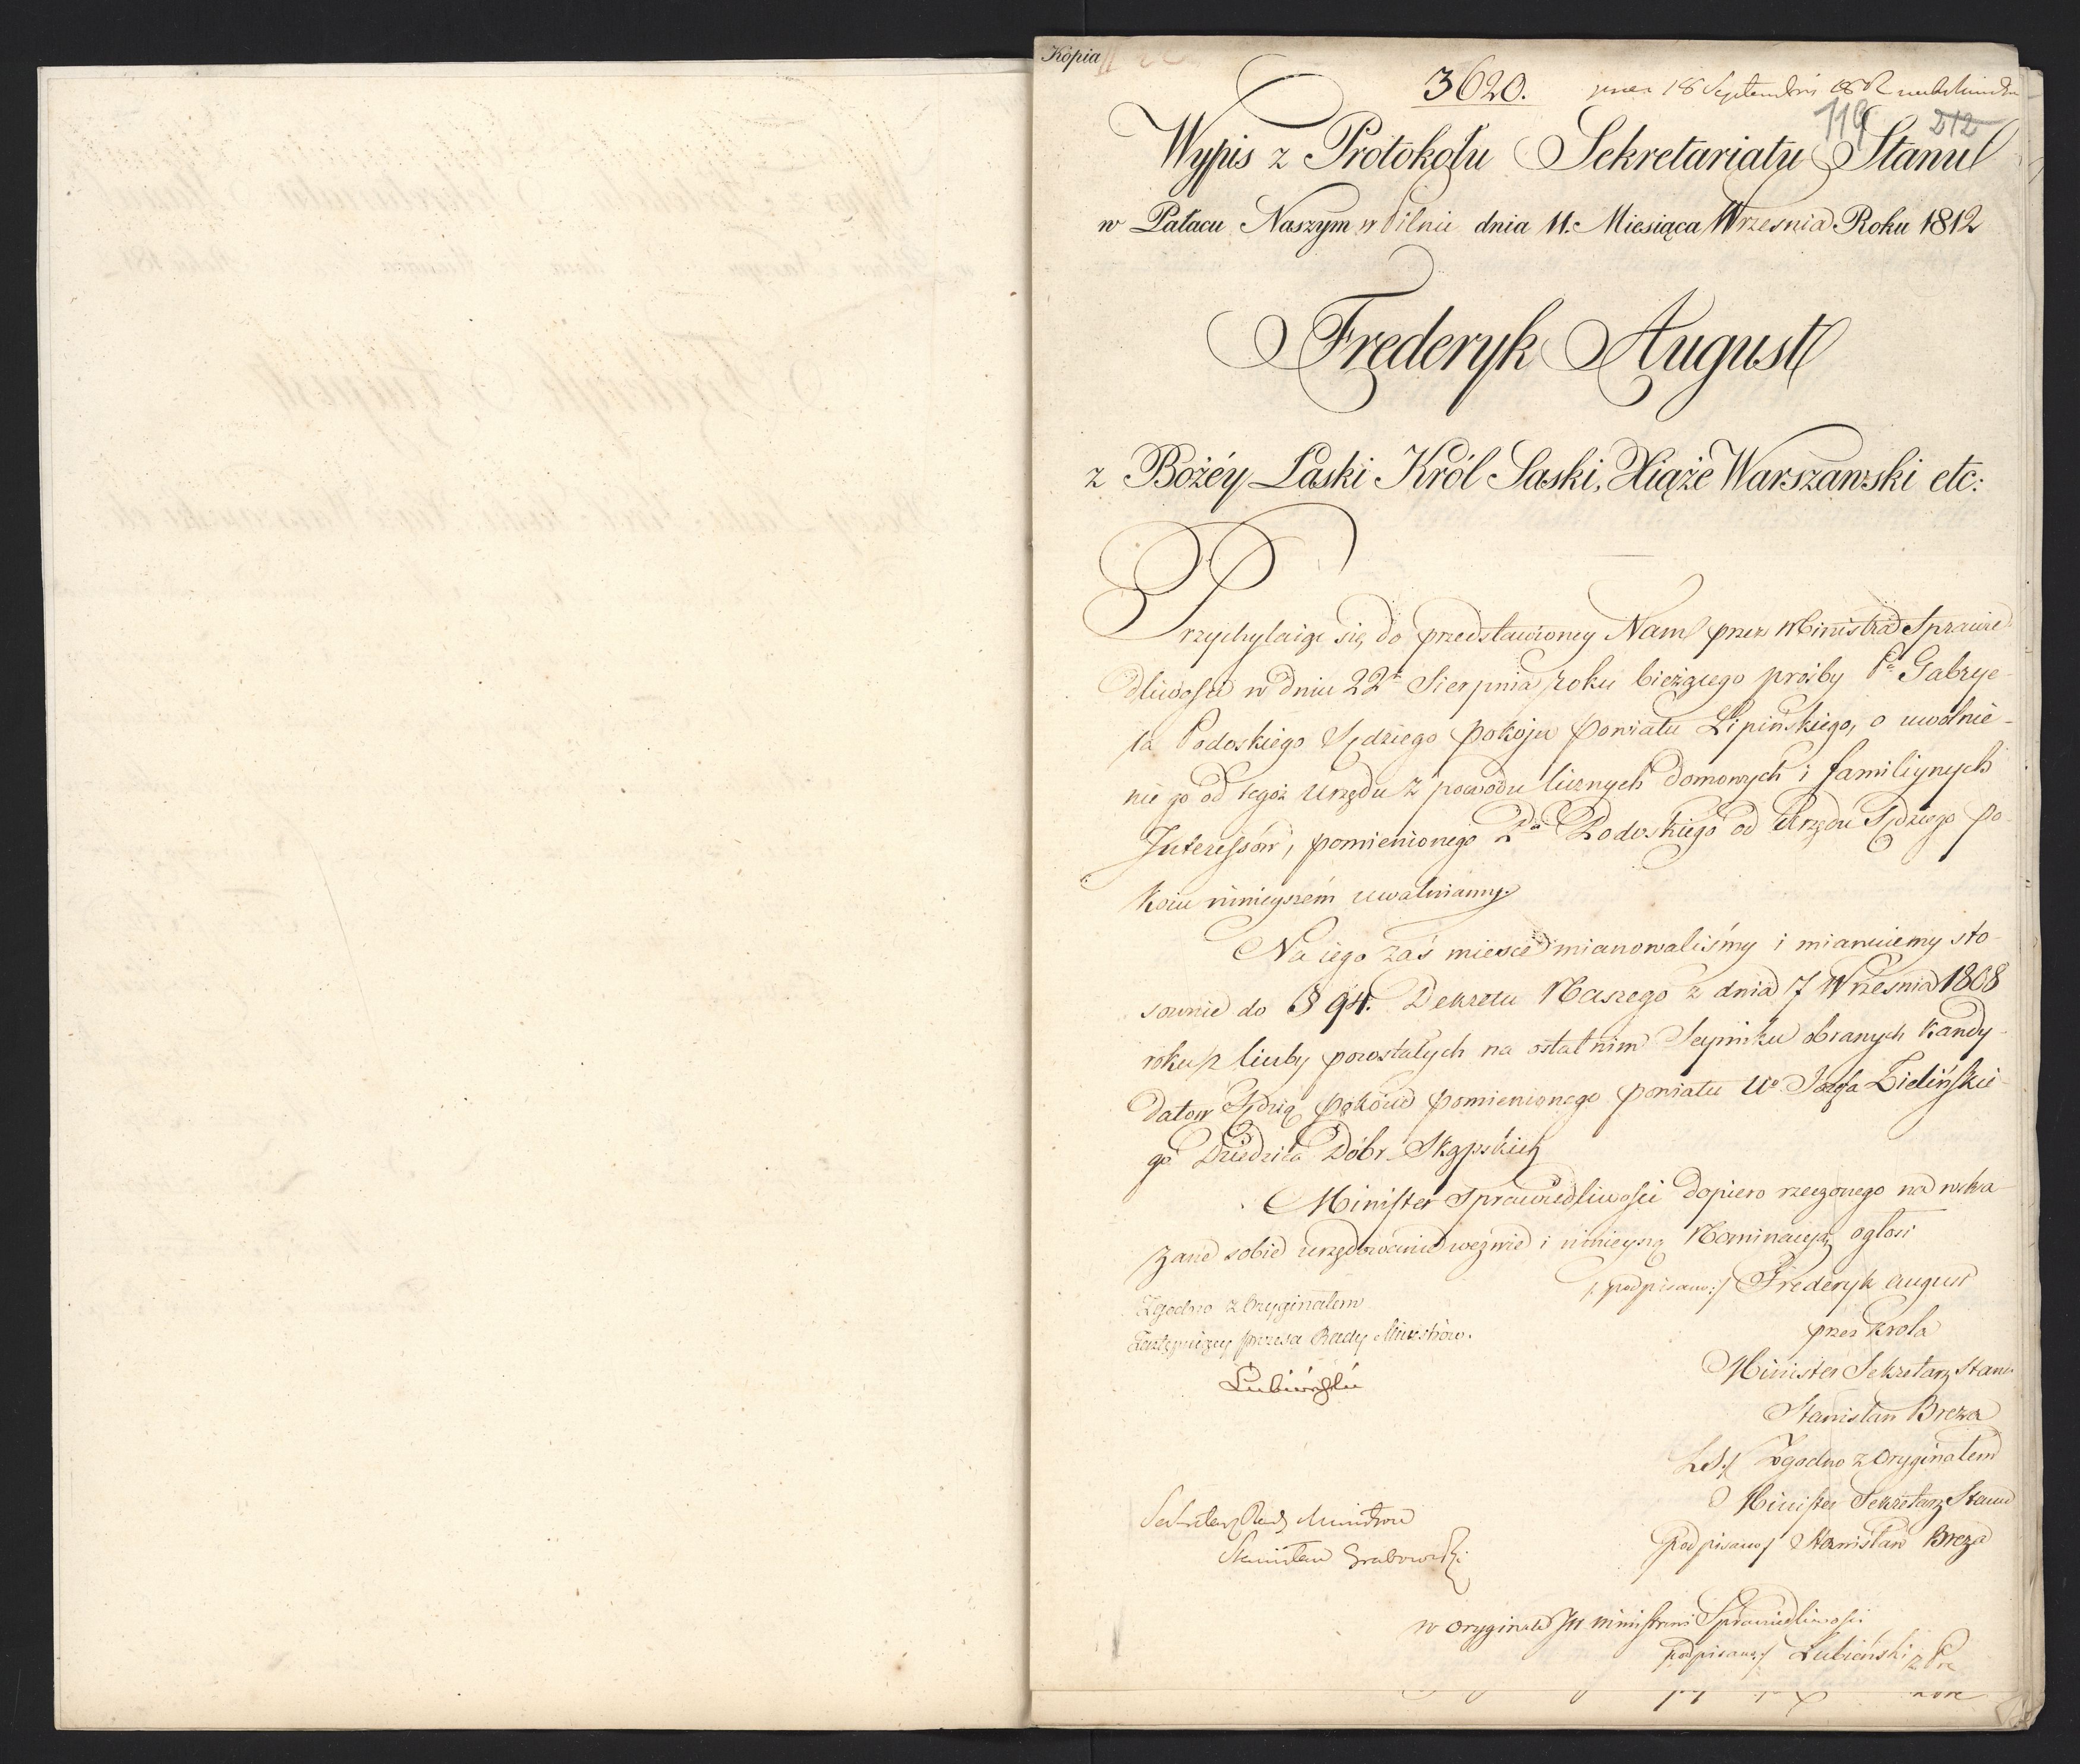 Kopia
3620.
119 212
Wypis z Protokołu Sekretariatu Stanu
w Pałacu Naszym w Pilnic dnia 11. Miesiąca Września Roku 1812
Frederyk August
z Bożéy Łaski Król Saski, Xiąże Warszawski etc:
Przychylaiąc się do przedstawioney Nam przez Ministra Sprawie-
dliwości w dniu 22 Sierpnia roku bieżącego prośby Pa Gabrye-
la Podoskiego Sędziego Pokoju Powiatu Lipińskiego, o uwolnie-
nie go od tegoż Urzędu z powodu licznych domowych i familiynych
Interessów, pomienionego Pa Podoskiego od Urzędu Sędziego Po-
koiu ninieyszém uwalniamy.
Na iego zaś mieysce mianowaliśmy i mianuiemy sto-
sownie do § 94. Dekretu Naszego z dnia 7 Września 1808
roku z liczby pozostałych na ostatnim Seymiku obranych Kandy-
datow Sędzią pokoiu pomienionego powiatu Uo Jozefa Zielińskie-
go Dziedzica Dóbr Skąpskich
Minister Sprawiedliwości dopiero rzeczonego na wska-
zane sobie urzędowanie wezwie i ninieyszą Nominacyą ogłosi
/:podpisano:/ Frederyk August
przez Krola
Minister Sekretarz Stanu
Stanisław Breza
L.S./ Zgodno z Oryginałem
Minister Sekretarz Stanu
Podpisano/ Stanisław Breza
Zgodno z Oryginałem
Zastępuiący prezesa Rady Ministrow.
Łubieński
Sekretarz Rady Ministrow
Stanisław Grabowski
w oryginale JW Ministrowi Sprawiedliwości
podpisano:/ Łubieński